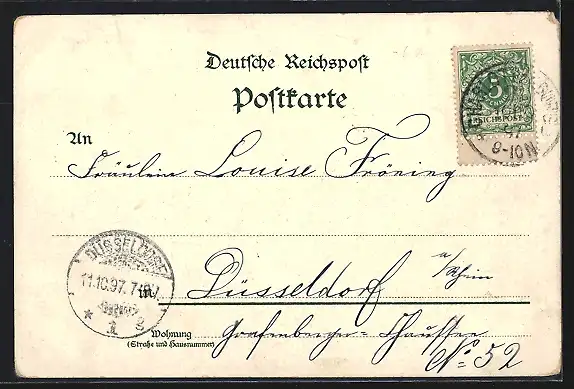 Deutsche Reichspost
Postkarte
An
Fräulein Louise Fröning
in Düsseldorf a/Rhein
Wohnung
(Straße und Hausnummer)
Grafenberger-Chaussee
No. 52
5
REICHSPOST
8-10N
DÜSSELDORF
11.10.97. 7-8V.
* 1 g